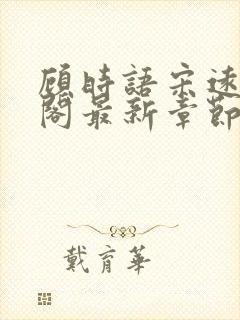 顾時語宋逨
閣最新章節
戴育華